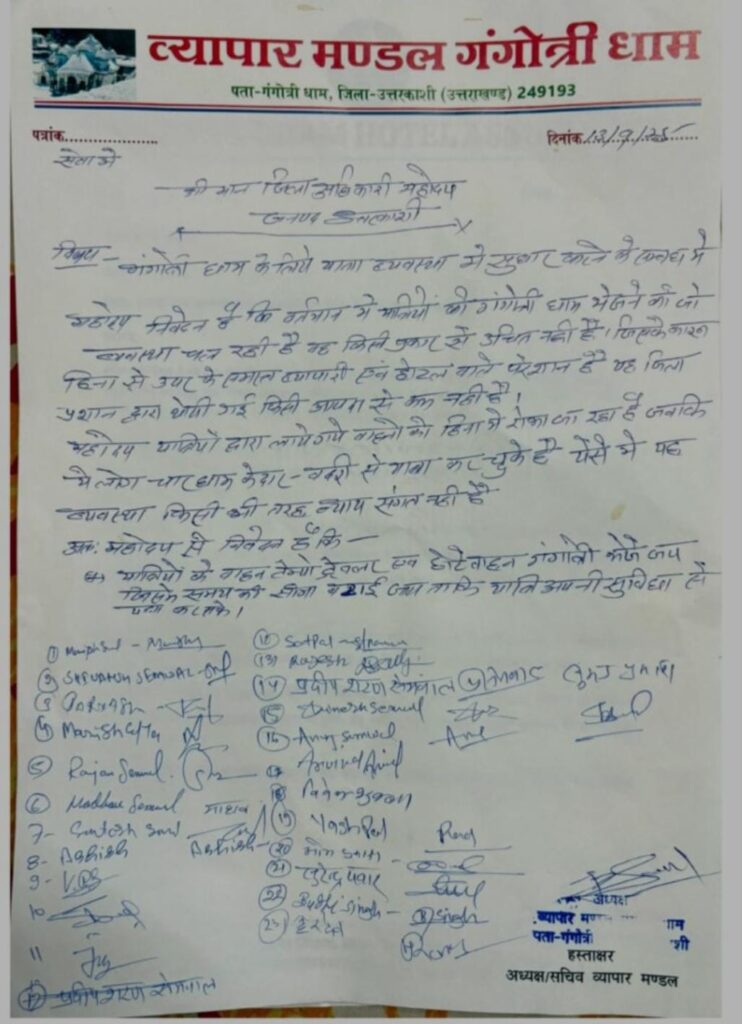 व्यापार मण्डल गंगोत्री धाम
पता-गंगोत्री धाम, जिला-उत्तरकाशी (उत्तराखण्ड) 249193
पत्रांक...................
दिनांक 13/9/25
सेवा में
श्री मान जिला अधिकारी महोदय
जनपद उत्तरकाशी
विषय - गंगोत्री धाम के लिये यात्रा व्यवस्था में सुधार करने के सम्बन्ध में
महोदय निवेदन है कि वर्तमान में यात्रियों को गंगोत्री धाम भेजने की जो
व्यवस्था चल रही है वह किसी प्रकार से उचित नहीं है। जिसके कारण
हिना से उपर के समस्त व्यापारी एवं होटल वाले परेशान है यह जिला
प्रशासन द्वारा थोपी गई किसी आपदा से कम नहीं है।
महोदय यात्रियों द्वारा लाये गये वाहनों को हिना में रोका जा रहा है जबकि
ये लोग चार धाम केदार - बद्री से यात्रा कर चुके है ऐसे में यह
व्यवस्था किसी भी तरह न्याय संगत नहीं है
अतः महोदय से निवेदन है कि -
यात्रियों के वाहन टेम्पो ट्रेवलर एवं छोटे वाहन गंगोत्री भेजे जाय
जिसके समय की सीमा बढाई जाय ताकि यात्रि अपनी सुविधा से
यात्रा कर सके।
①
②
③
④ Manish
⑤ Rajan Semwal
⑥ Madhav Semwal माधव
7- Santosh
8- Ashish Ashish
9-
10
11
⑫ प्रदीप शरण सेमवाल
⑫ Satpal
⑬ Rajesh
⑭ प्रदीप शरण सेमवाल
⑮ Semwal
⑯ Anuj Semwal
⑰ Arvind
⑱
⑲ Yashpal
⑳
㉑ सुरेन्द्र पंवार
㉒ Singh - Singh
㉓
अध्यक्ष
व्यापार मण्डल धाम
पता-गंगोत्री
हस्ताक्षर
अध्यक्ष/सचिव व्यापार मण्डल